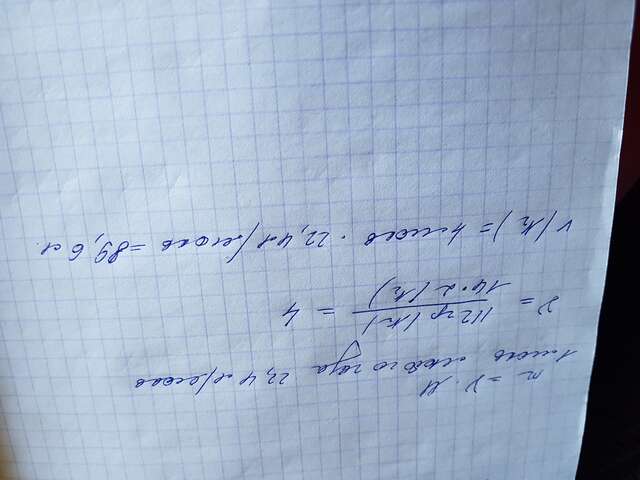 m = ν · M
1 моль любого газа 22,4 л/моль
ν = 112гр (N₂) / 14·2 (N₂) = 4
V(N₂) = 4 моль · 22,4 л/моль = 89,6 л.